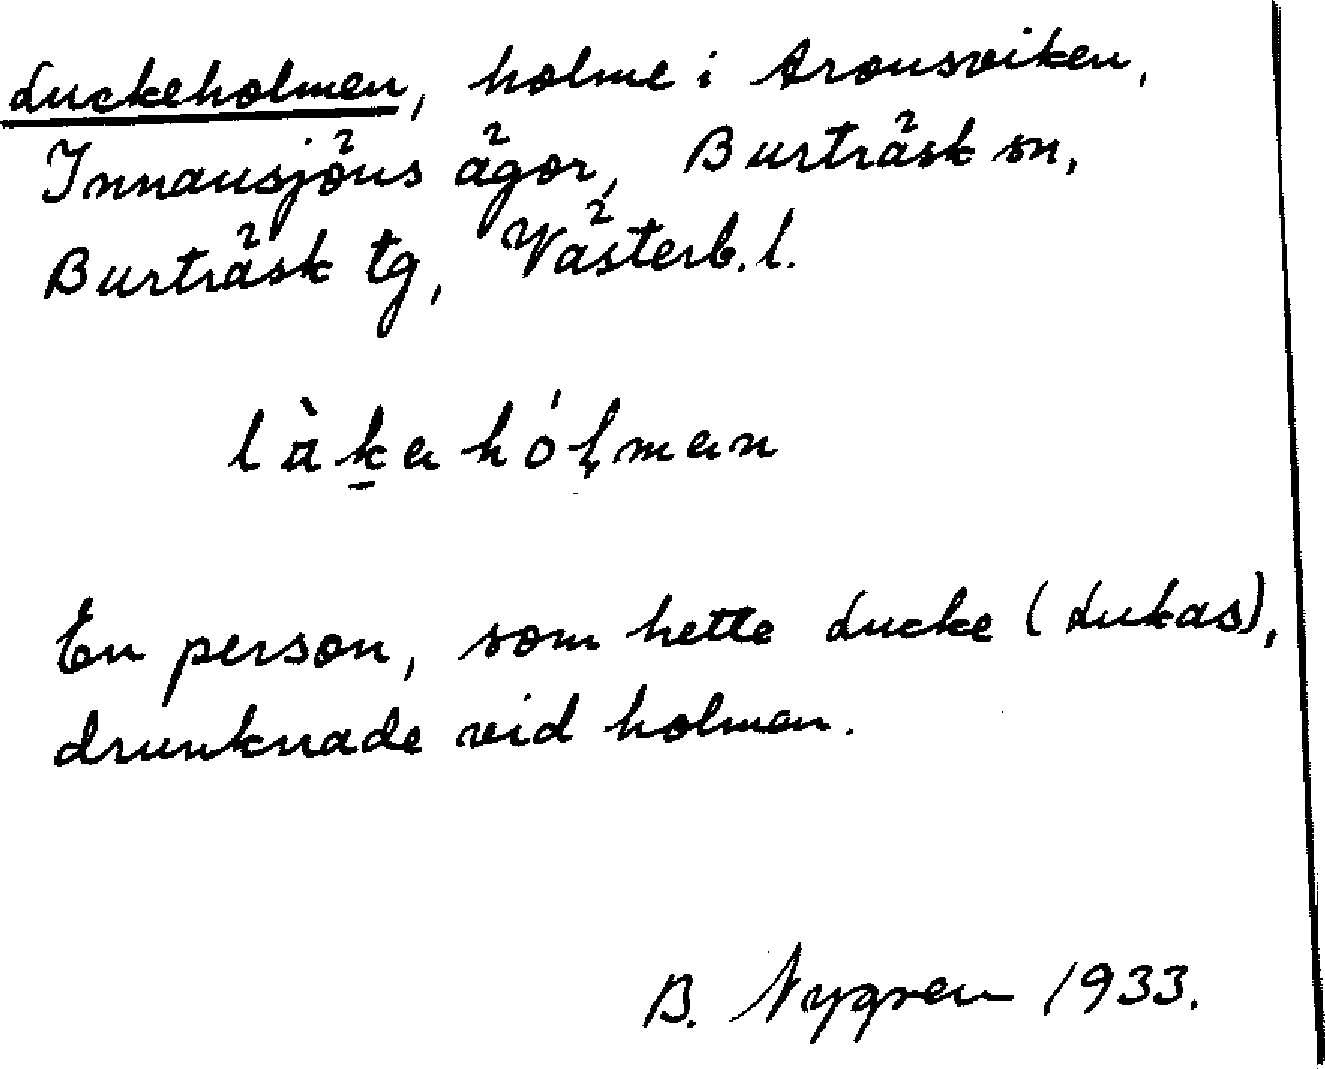 Luckeholmen, holme i Aronsviken,
Innansjöns ägor, Burträsk sn,
Burträsk tg, Västerb. l.
En person, som hette Lucke (Lukas),
drunknade vid holmen.
B. Nygren 1933.